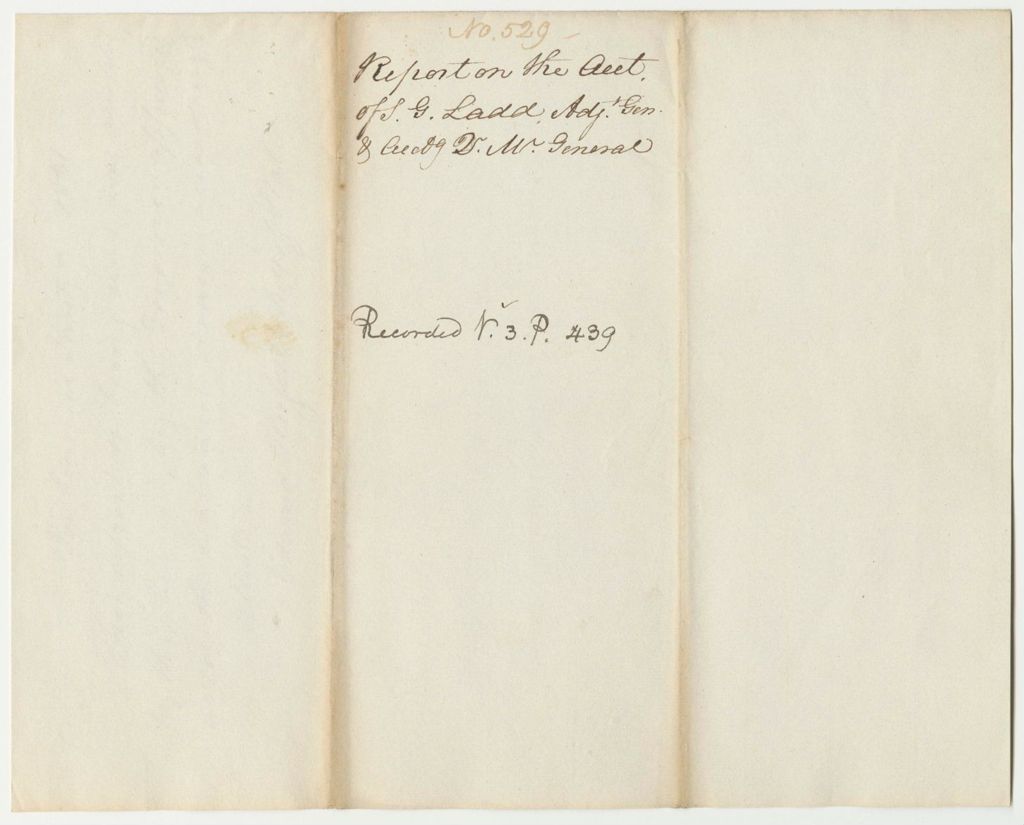 No. 529 –
Report on the Acct.
of S. G. Ladd, Adj.t Gen.
& Acctg Qr. Mr. General
Recorded V. 3. P. 439